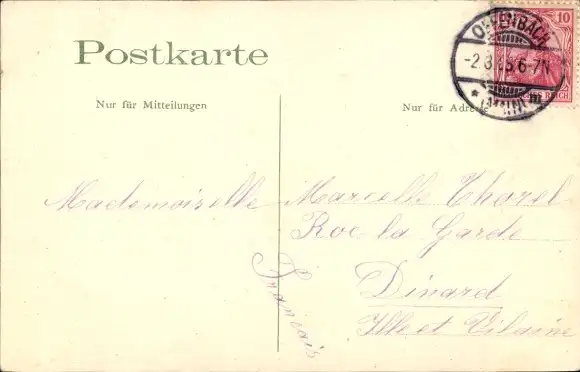 Postkarte
Nur für Mitteilungen
Nur für Adresse
OFFENBACH
6-7N
(MAIN)
10
Mademoiselle Marcelle Thorel
Roc la Garde
Dinard
Ille et Vilaine
Français